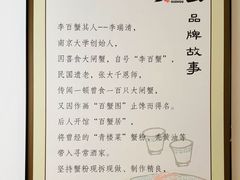 品牌故事
李百蟹其人--李瑞清，
南京大学创始人，
因喜食大闸蟹，自号“李百蟹”，
民国遗老，张大千恩师，
传闻一顿曾食一百只大闸蟹，
又因作画“百蟹图”止馋而得名。
后人开馆“百蟹居”，
将曾经的“青楼菜”蟹粉、秃黄油等
带入寻常酒家。
坚持蟹粉现拆现做、制作精良，